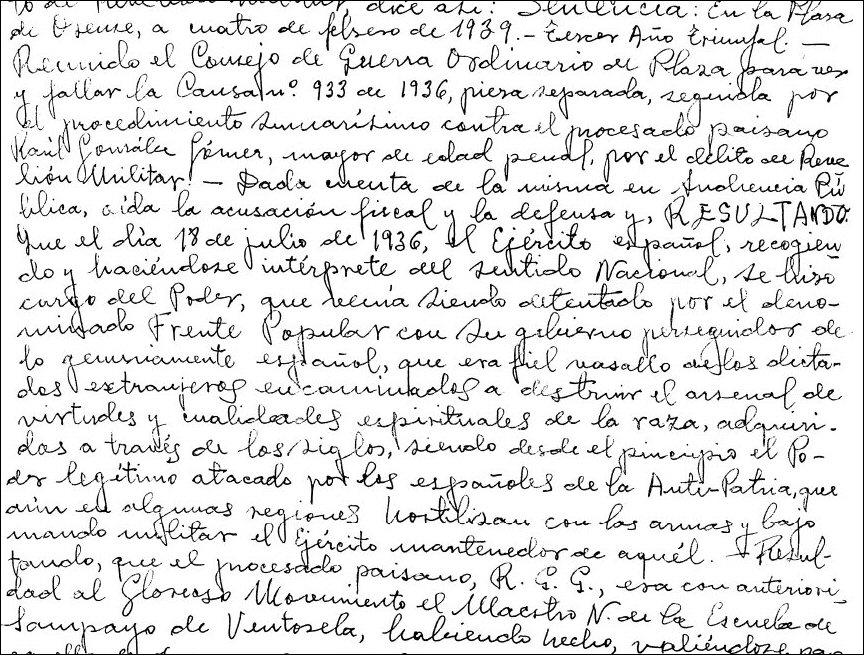 dice así: Sentencia: En la Plaza
de Orense, a cuatro de febrero de 1939.- Tercer Año Triunfal. —
Reunido el Consejo de Guerra Ordinario de Plaza para ver
y fallar la Causa nº. 933 de 1936, pieza separada, seguida por
el procedimiento sumarísimo contra el procesado paisano
Raúl González Gómez, mayor de edad penal, por el delito de Rebe
lión Militar. — Dada cuenta de la misma en Audiencia Pú
blica, oída la acusación fiscal y la defensa y, RESULTANDO:
Que el día 18 de julio de 1936, el Ejército español, recogien
do y haciéndose intérprete del sentido Nacional, se hizo
cargo del Poder, que venía siendo detentado por el deno-
minado Frente Popular con su gobierno perseguidor de
lo genuinamente español, que era fiel vasallo de los dicta-
dos extranjeros encaminados a destruir el arsenal de
virtudes y cualidades espirituales de la raza, adquiri-
das a través de los siglos, siendo desde el principio el Po-
der legítimo atacado por los españoles de la Anti-Patria, que
aún en algunas regiones hostilizan con las armas y bajo
mando militar el Ejército mantenedor de aquél. — Resul-
tando, que el procesado paisano, R. G. G., era con anteriori-
dad al Glorioso Movimiento el Maestro N. de la Escuela de
Sampayo de Ventosela, habiendo hecho, valiéndose